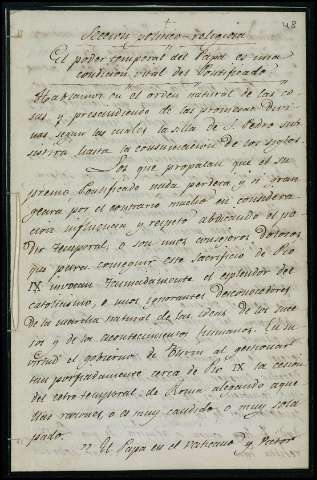 48
Seccion politico-religiosa
El poder temporal del Papa es una
condicion vital del Pontificado
Hablamos en el orden natural de las co-
sas y prescindiendo de las promesas divi-
nas segun las cuales la silla de S. Pedro sub-
sistirá hasta la consumacion de los siglos.
Los que propalan que el su-
premo Pontificado nada perderá y si gran-
geará por el contrario mucho en considera-
cion influencia y respeto abdicando el po-
der temporal, o son unos consejeros dolosos
que para conseguir este sacrificio de Pio
IX invocan taimadamente el esplendor del
catolicismo, o unos ignorantes desconocedores
de la marcha natural de las ideas de los suce-
sos y de los acontecimientos humanos. En su
virtud el gobierno de Turin al gestionar
tan porfiadamente cerca de Pio IX la cesion
del cetro temporal de Roma alegando aque-
llas razones, o es muy candido o muy sola-
pado.
" El Papa en el Vaticano y Victor